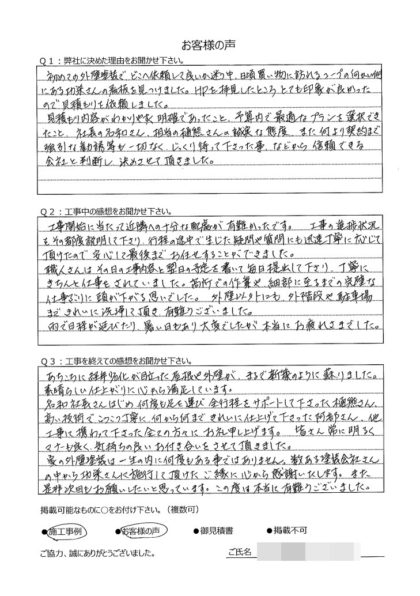 お客様の声
Q1：弊社に決めた理由をお聞かせ下さい。
初めての外壁塗装で、どこへ依頼して良いか迷う中、日頃買い物に訪れるコープの向かい側
にある功栄さんの看板を見つけました。HPを拝見したところとても印象が良かった
ので見積もりを依頼しました。
見積もり内容がわかりやすく明確であったこと、予算内で最適なプランを選択でき
たこと、社長の名和さん、担当の穂熊さんの誠実な態度、また何より契約まで
強引な勧誘等が一切なく、じっくり待って下さった事、などから信頼できる
会社と判断し、決めさせて頂きました。
Q2：工事中の感想をお聞かせ下さい。
工事開始に当たって近隣への十分な配慮が有難かったです。 工事の進捗状況
をその都度説明して下さり、行程の途中で生じた疑問や質問にも迅速丁寧に応じて
頂けたので安心して最後までお任せすることができました。
職人さんはその日の工事内容と翌日の予定を書いて毎日提出して下さり、丁寧に
きちんと仕事もされていました。高所での作業や細部に至るまでの完璧な
仕事ぶりに頭が下がる思いでした。外壁以外にも、外階段や駐車場
まできれいに洗浄して頂き有難うございました。
雨で日程が延びたり、暑い日もあり大変でしたが本当にお疲れさまでした。
Q3：工事を終えての感想をお聞かせ下さい。
あちこちに経年劣化が目立った屋根や外壁が、まるで新築のように蘇りました。
素晴らしい仕上がりに心から満足しています。
名和社長さんはじめ、何度も足を運び全行程をサポートして下さった穂熊さん、
高い技術でこつこつ丁寧に、何から何まできれいに仕上げて下さった阿部さん、他
工事に携わって下さった全ての方々にお礼申し上げます。 皆さん常に明るく
マナーも良く、気持ちの良いお付き合いをさせて頂きました。
家の外壁塗装は一生の内に何度もある事ではありません。数ある塗装会社さん
の中から功栄さんに施行して頂けたご縁に心から感謝いたします。また
是非次回もお願いしたいと思っています。この度は本当に有難うございました。
掲載可能なものに○をお付け下さい。（複数可）
●施工事例 ●お客様の声 ●御見積書 ●掲載不可
ご協力、誠にありがとうございました。 ご氏名